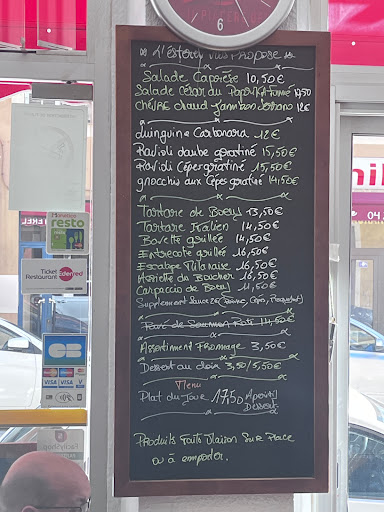 6
L'Esterel vous propose
Salade Caprese 10,50€
Salade César du Papet Fumé 14,50
Chèvre chaud Jambon Serrano 12€
Linguine Carbonara 12€
Ravioli daube gratiné 15,50€
Ravioli Cépes gratiné 15,50€
gnocchis aux Cépes gratiné 14,50€
Tartare de Boeuf 13,50€
Tartare Italien 14,50€
Bavette grillée 14,50€
Entrecote grillée 16,50€
Escalope Milanaise 16,50€
Assiette du Boucher 16,50€
Carpaccio de Boeuf 11,50€
Supplement Sauce 2€ (Creme, Cépes, Roquefort)
Pavé de Saumon Roti 14,50€
Assortiment Fromage 3,50€
Dessert au choix 3,50/5,50€
Menu
Plat du Jour 17,50 Aperitif
Dessert
Produits Faits Maison Sur Place
ou à emporter.
resto
Ticket
Restaurant Edenred
CB
VISA